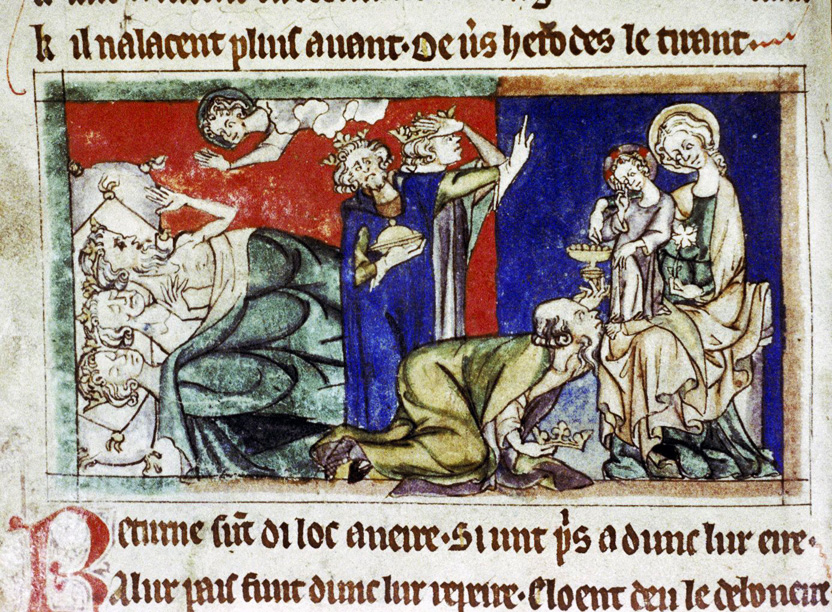 k il nalacent pluis auant. De u's herodes le tirant.
Returne sūt di loc arieire. Si unt p's a dunc lur eire.
A lur pais funt dunc lur repeire. E loent deu le deboneire